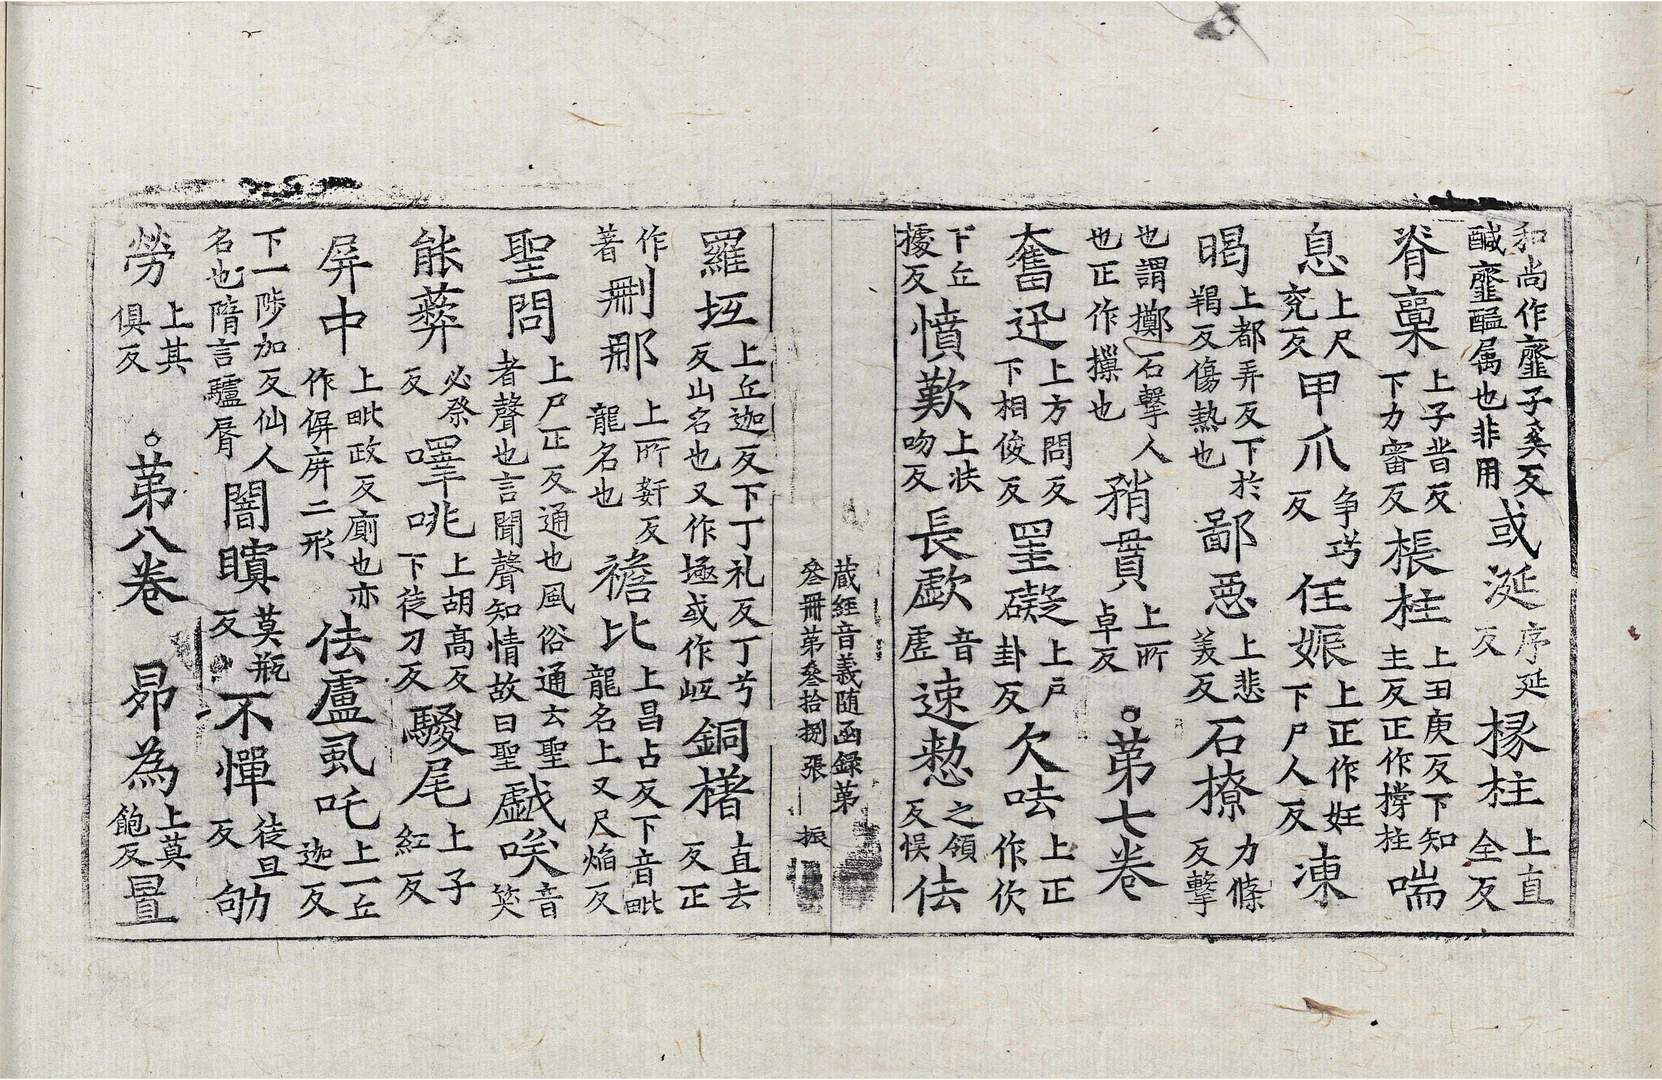 和尚作虀子奚反
醎虀醞属也非用
或涎
序延
反
椽柱
上直
全反
脊稟
上子昔反
下力審反
棖柱
上丑庚反下知
主反正作撐拄
喘
息
上尺
兖反
甲爪
争巧
反
任娠
上正作妊
下尸人反
凍
暍
上都弄反下於
羯反傷熱也
鄙惡
上悲
美反
石撩
力條
反擊
也謂擲石擊人
也正作摷也
矟貫
上所
卓反
第七卷
奮迅
上方問反
下相俊反
罣礙
上戶
卦反
欠呿
上正
作㰦
下丘
據反
憤歎
上扶
吻反
長歔
音
虛
速愸
之領
反悮
佉
藏經音義随函録第
叄冊第叄拾捌張 振
羅坘
上丘迦反下丁礼反丁兮
反山名也又作墭或作岻
銅橏
直去
反正
作
著
刪那
上所姧反
龍名也
襜比
上昌占反下音毗
龍名上又尺焰反
聖問
上尸正反通也風俗通云聖
者聲也言聞聲知情故曰聖
戱唉
音
笑
能蔽
必祭
反
嘷咷
上胡髙反
下徒刀反
騣尾
上子
紅反
屏中
上毗政反廁也亦
作偋庰二形
佉盧虱吒
上一丘
迦反
下一陟加反仙人
名也隋言驢脣
闇瞙
莫瓶
反
不憚
徒旦
反
劬
勞
上其
俱反
第八卷
昴為
上莫
飽反
暑